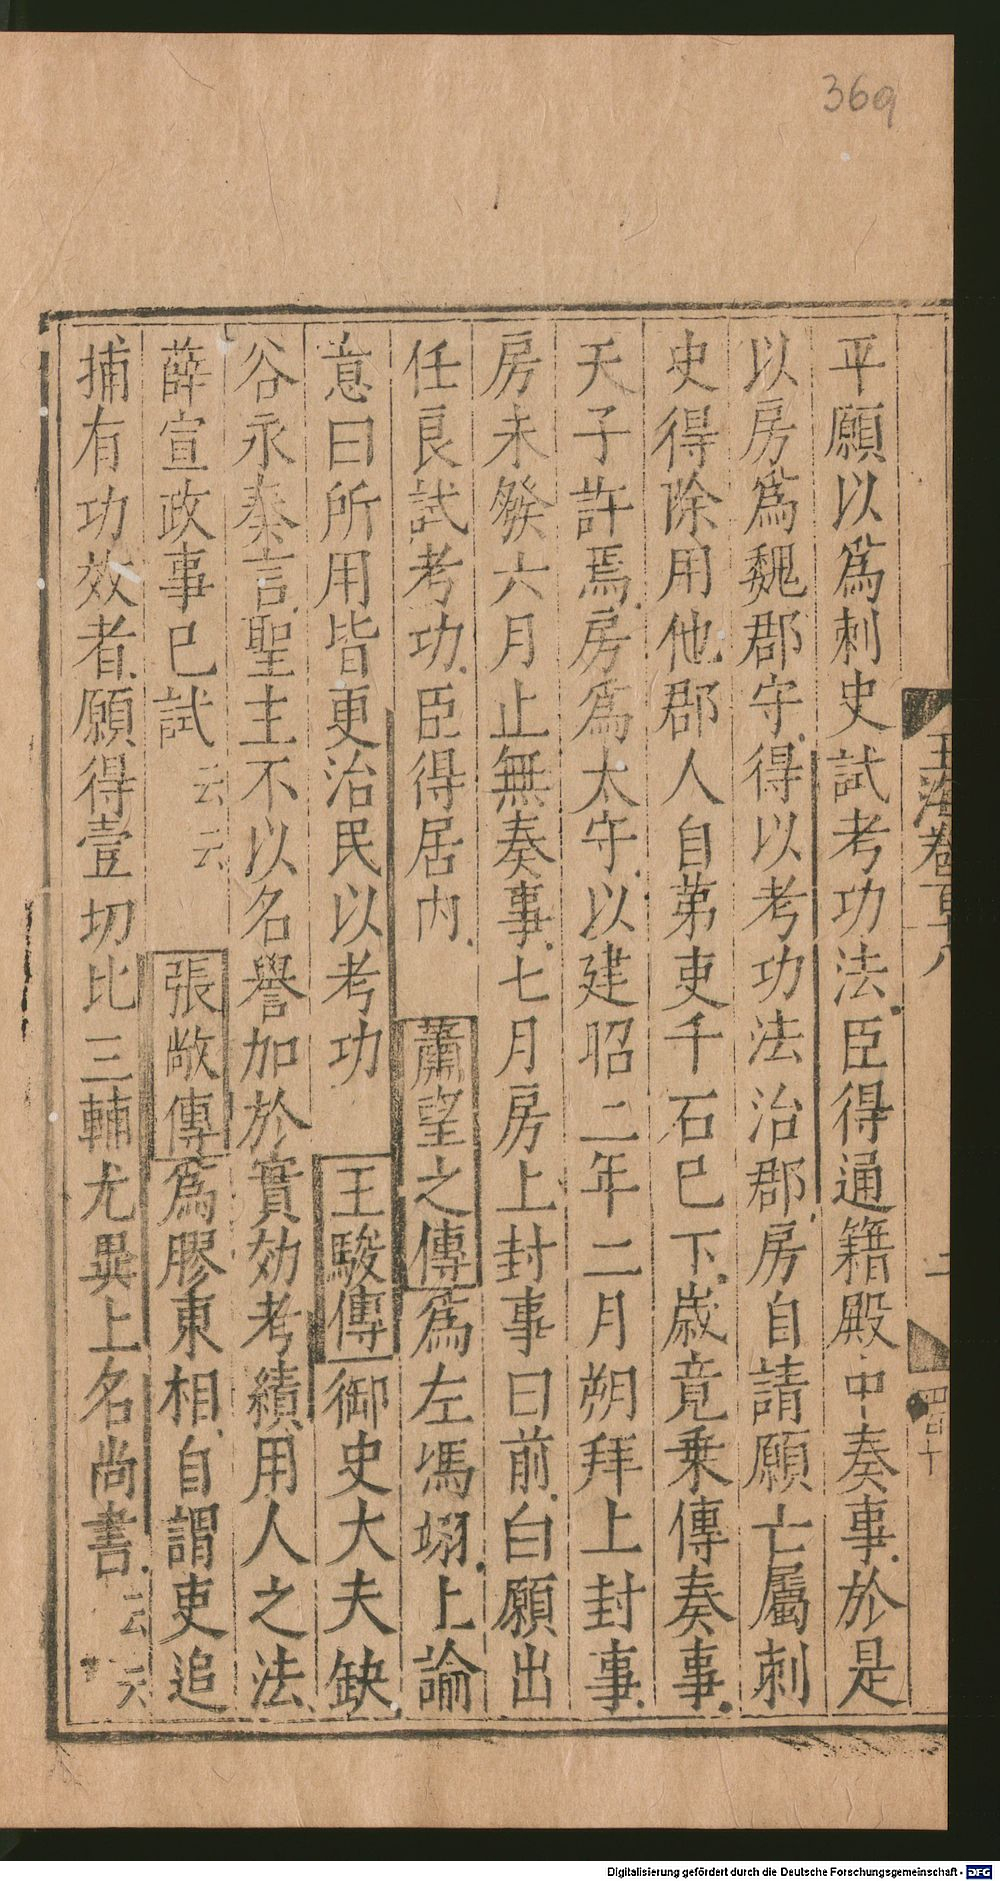 369
玉海卷百十八
平願以爲刺史試考功法臣得通籍殿中奏事於是
以房爲魏郡守得以考功法治郡房自請願亡屬刺
史得除用他郡人自第吏千石巳下歲竟乗傳奏事
天子許焉房爲太守以建昭二年二月朔拜上封事
房未發六月止無奏事七月房上封事曰前白願出
任良試考功臣得居内 蕭望之傳爲左馮翊上論
意曰所用皆更治民以考功 王駿傳御史大夫缺
谷永奏言聖主不以名譽加於實効考績用人之法
薛宣政事巳試云云 張敞傳爲膠東相自謂吏追
捕有功效者願得壹切比三輔尤異上名尚書云云
Digitalisierung gefördert durch die Deutsche Forschungsgemeinschaft - DFG